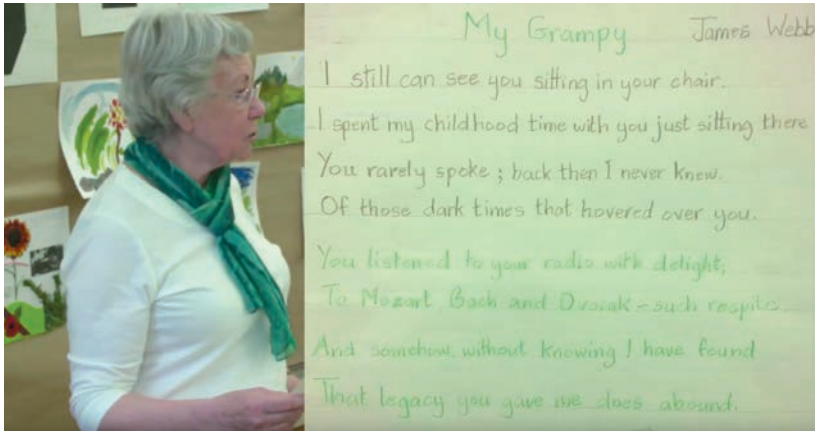 My Grampy James Webb
I still can see you sitting in your chair.
I spent my childhood time with you just sitting there
You rarely spoke; back then I never knew.
Of those dark times that hovered over you.
You listened to your radio with delight;
To Mozart, Bach and Dvorak - such respite.
And somehow, without knowing I have found
That legacy you gave me does abound.